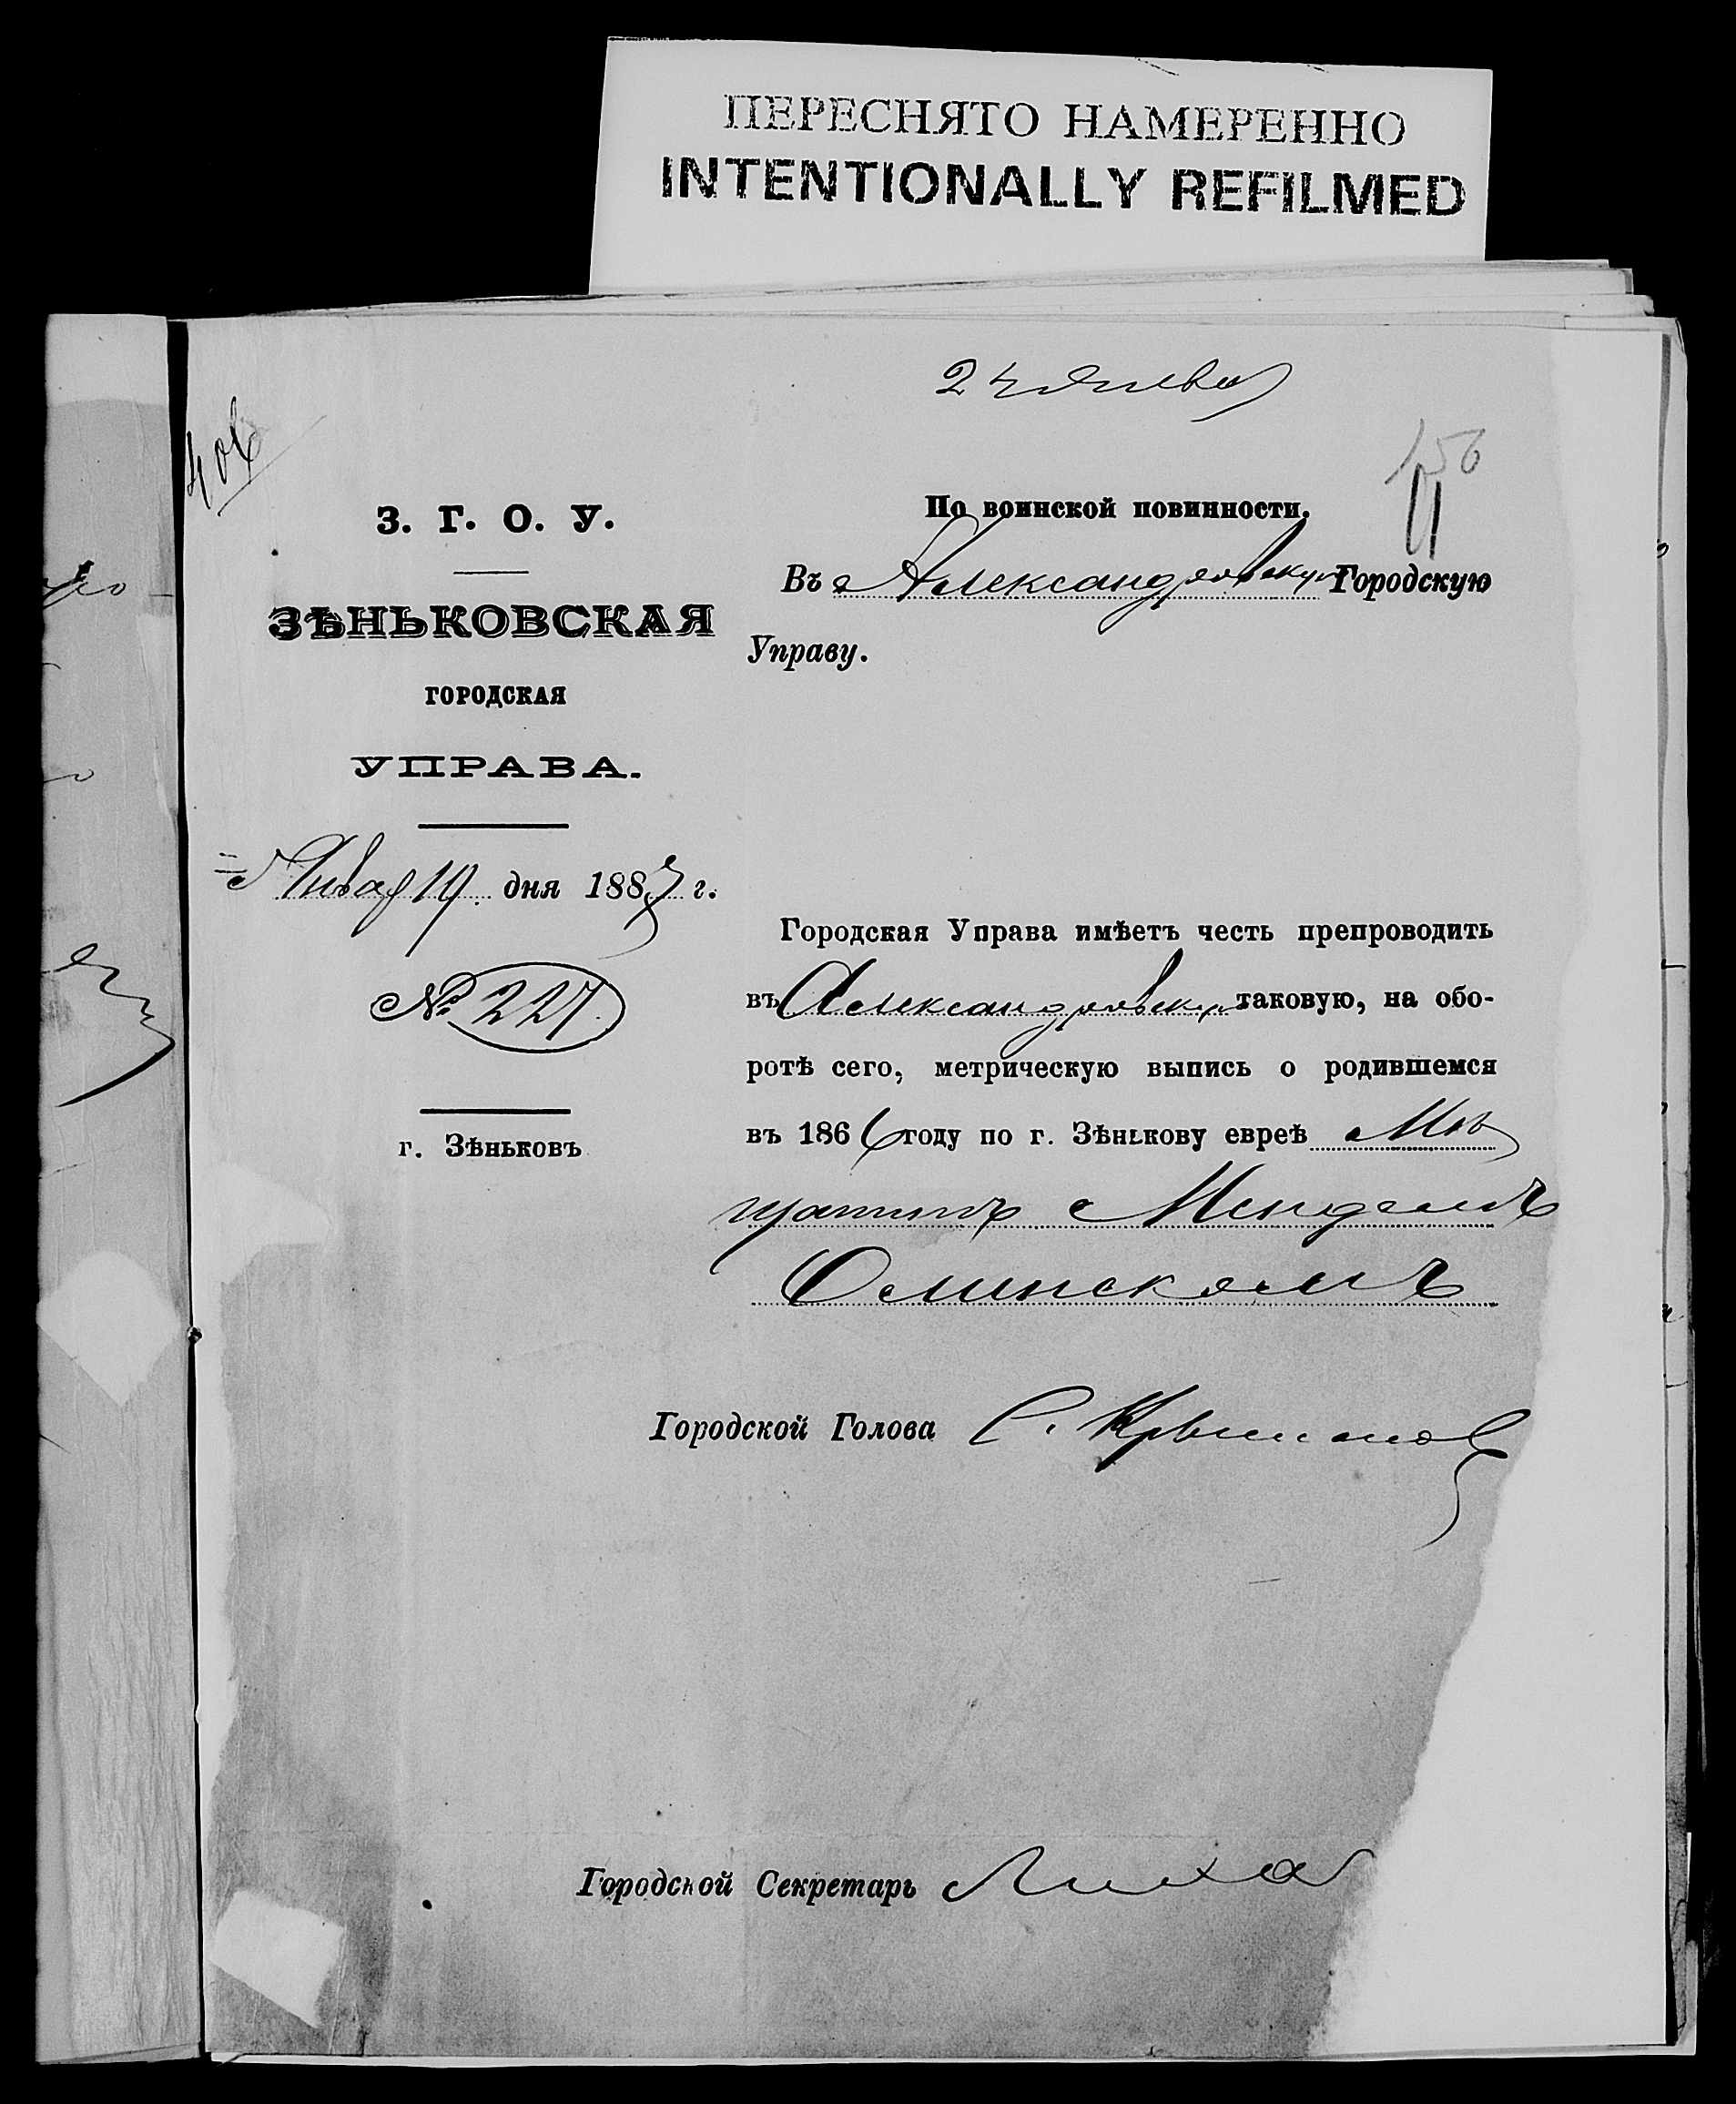 ПЕРЕСНЯТО НАМЕРЕННО
INTENTIONALLY REFILMED
24 Янва
406
156
З. Г. О. У.
ЗѢНЬКОВСКАЯ
ГОРОДСКАЯ
УПРАВА.
Январ 19 дня 1887 г.
№ 227
г. Зѣньковъ
По воинской повинности.
Въ Александровскую Городскую
Управу.
Городская Управа имѣетъ честь препроводить
въ Александровскую таковую, на обо-
ротѣ сего, метрическую выпись о родившемся
въ 1866 году по г. Зѣнькову евреѣ Мов
Менделѣ
Олинскомъ
Городской Голова С.
Городской Секретарь Лиха